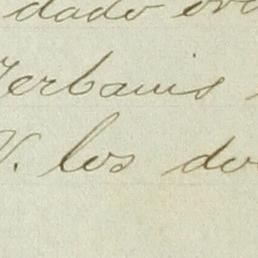 dado
Yerbanis
V. los do